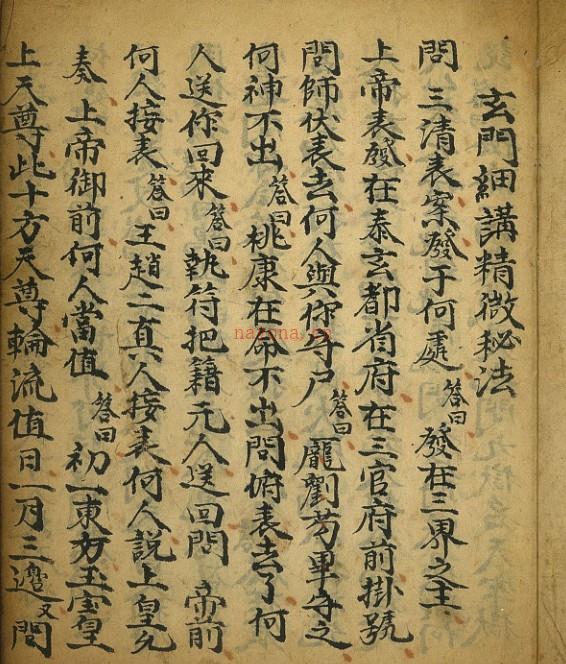 玄門細講精微秘法
問 三清表案發于何處 答曰 發在三界之主
上帝表發在泰玄都省府在三官府前掛號
問師伏表去何人與你守尸 答曰 龐劉苟畢守之
何神不出 答曰 桃康在命不出問俯表去了何
人送你回來 答曰 執符把籍元人送回問 帝前
何人接表 答曰 王趙二真人接表何人說上皇允
奏 上帝御前何人當值 答曰 初一東方玉宝皇
上天尊此十方天尊輪流值日一月三邊又問